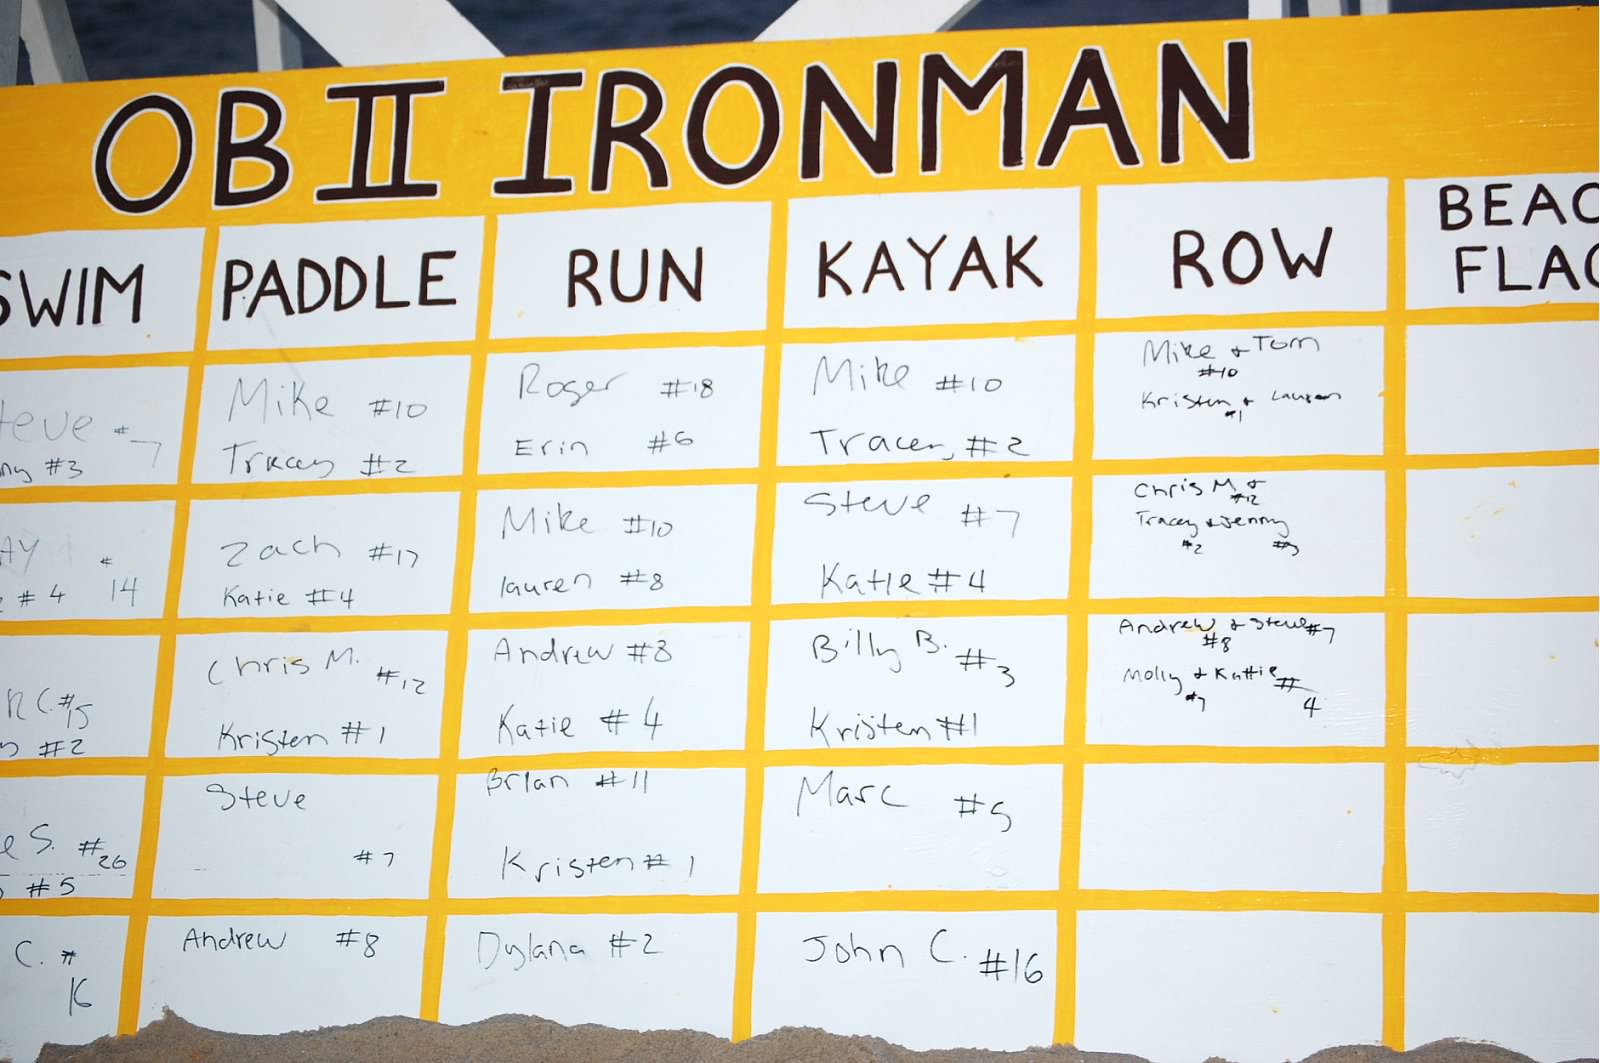 OB II IRONMAN
SWIM PADDLE RUN KAYAK ROW BEAC
FLAG
teve #7
ny #3
Mike #10
Tracey #2
Roger #18
Erin #6
Mike #10
Tracey #2
Mike + Tom
#10
Kristen + Lauren
#1
AY #14
# 4
Zach #17
Katie #4
Mike #10
lauren #8
Steve #7
Katie #4
Chris M. +
#12
Tracey + Jenny
#2 #3
R C. #15
#2
Chris M. #12
Kristen #1
Andrew #8
Katie #4
Billy B. #3
Kristen #1
Andrew + Steve #7
#8
Molly + Kattie #4
#7
e S. #26
#5
Steve
#7
Brian #11
Kristen #1
Marc #5
C. #16
Andrew #8
Dylana #2
John C. #16